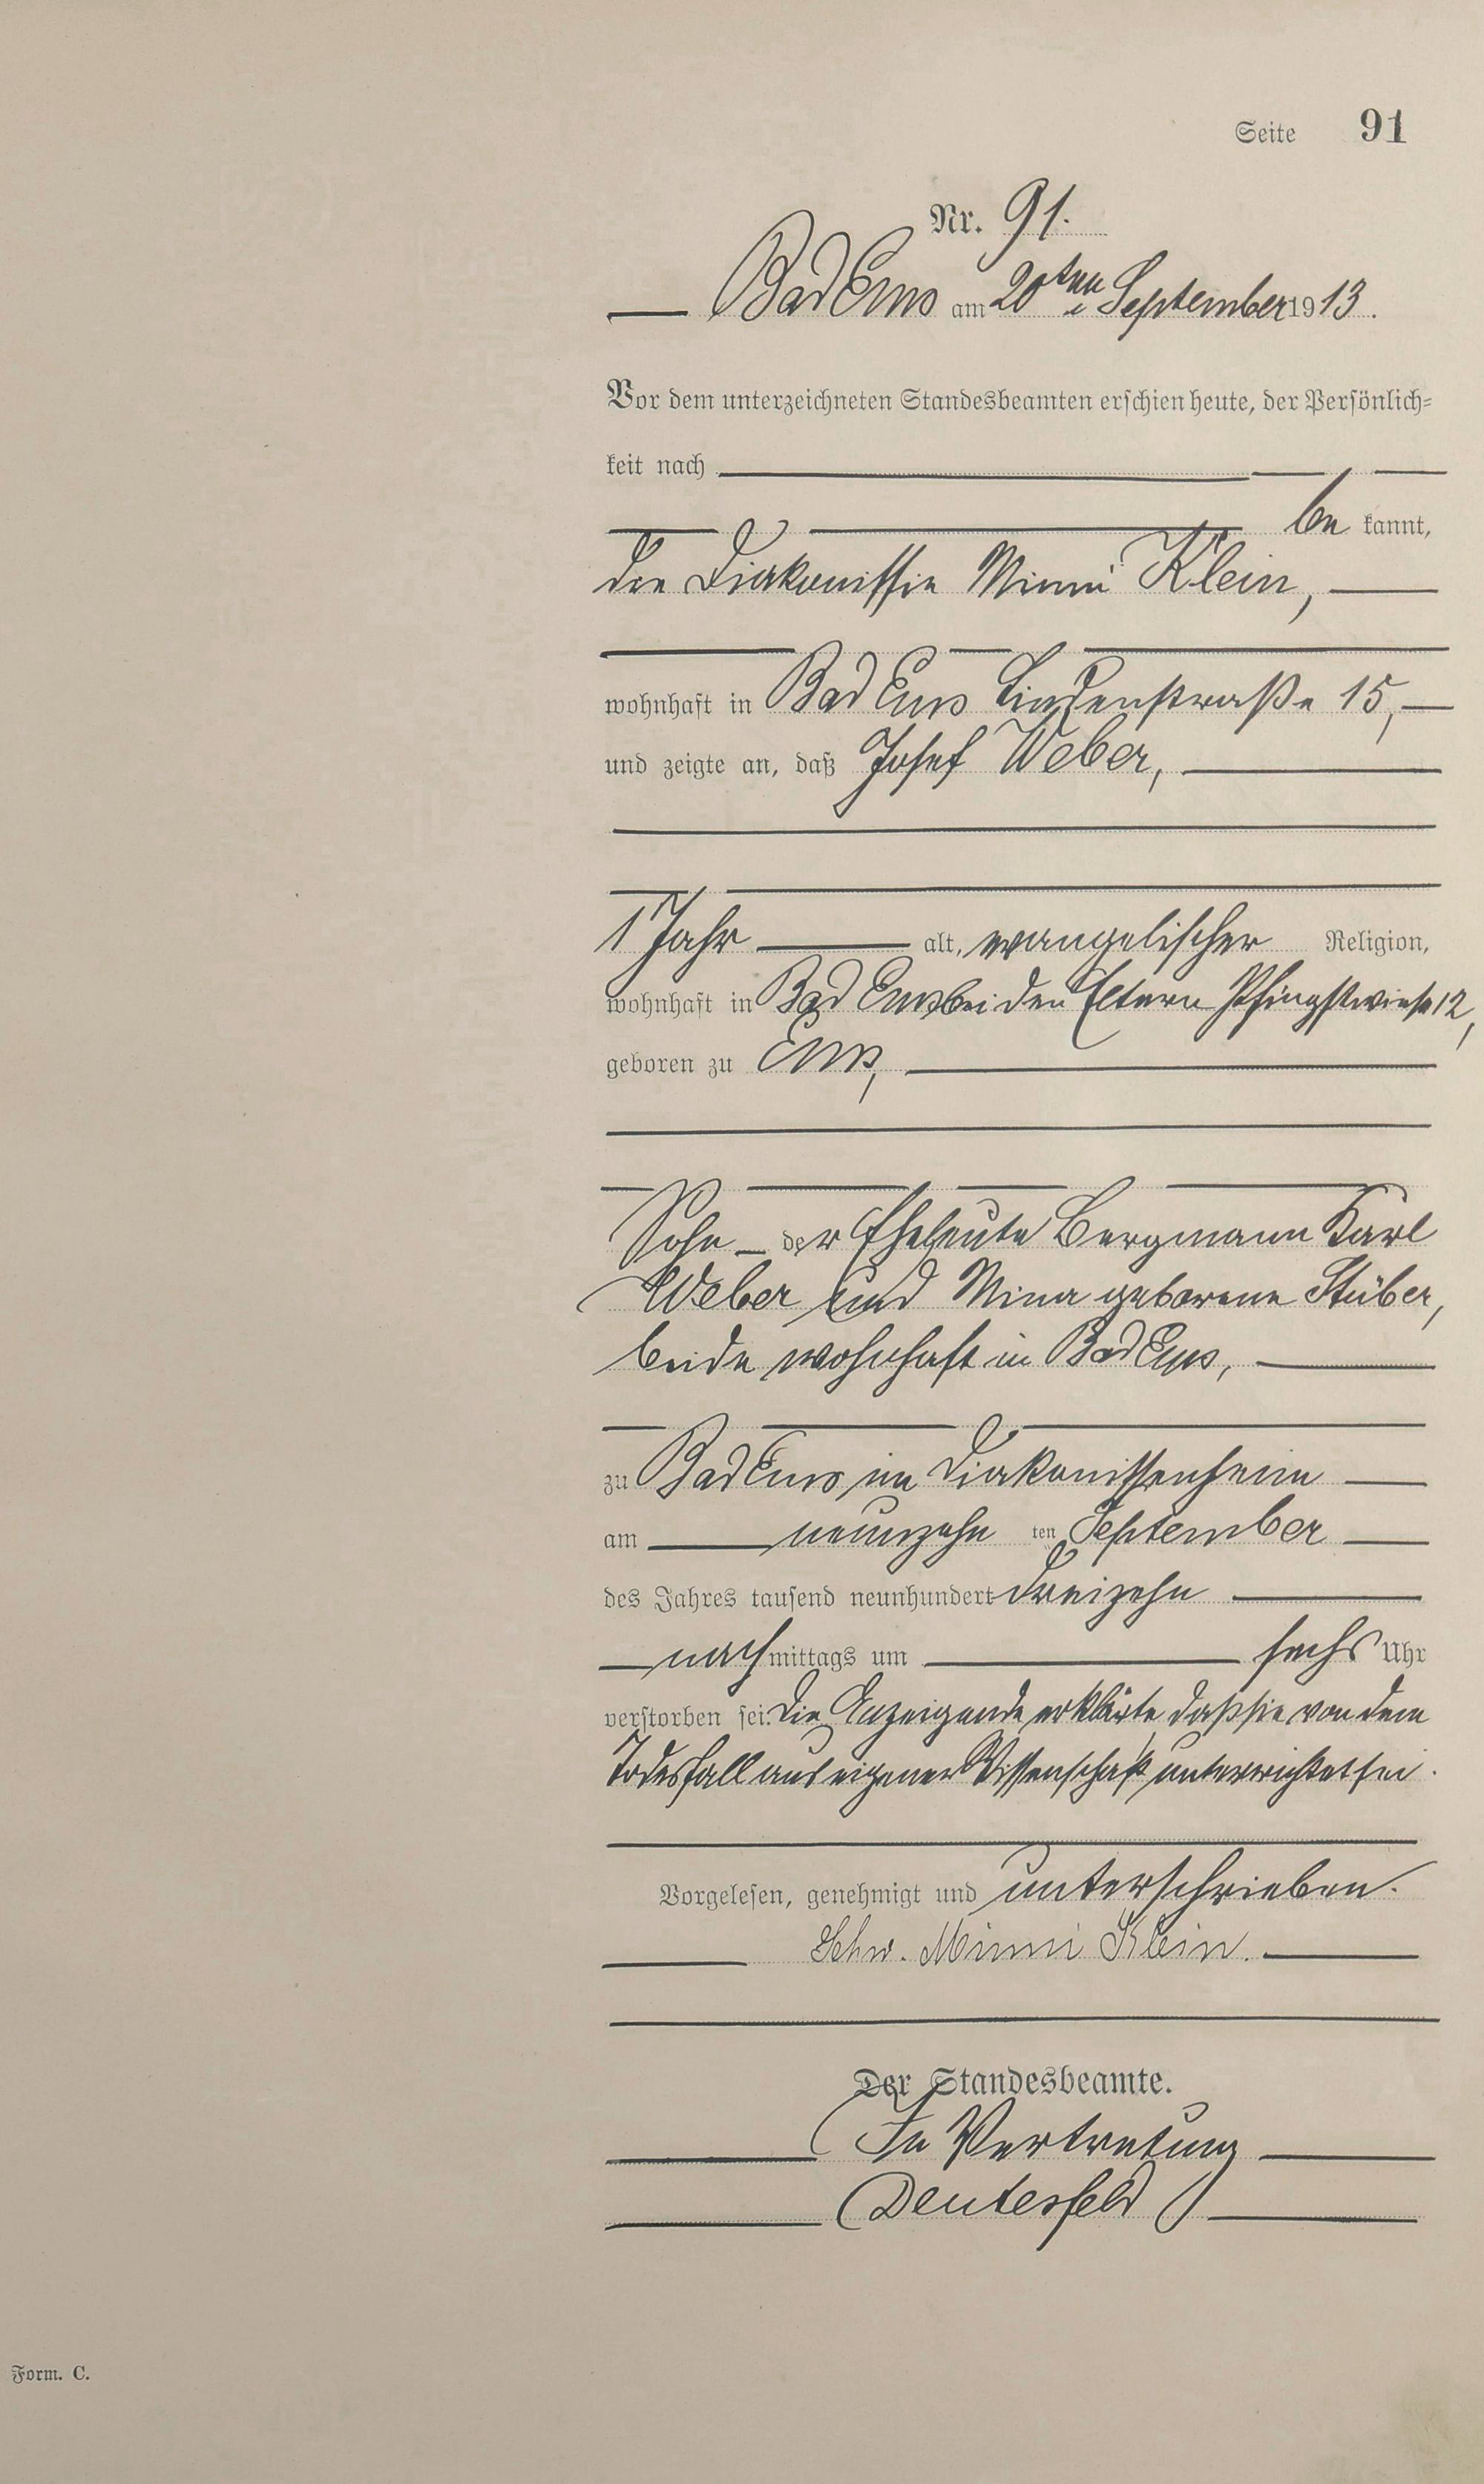 Seite 91
Nr. 91.
Bad Ems am 20ten September 1913.
Vor dem unterzeichneten Standesbeamten erschien heute, der Persönlich=
keit nach
be kannt,
die Diakonissin Minni Klein,
wohnhaft in Bad Ems Lindenstraße 15,
und zeigte an, daß Josef Weber,
1 Jahr alt, evangelischer Religion,
wohnhaft in Bad Ems bei den Eltern Pfingstwiese 12,
geboren zu Ems,
Sohn der Eheleute Bergmann Karl
Weber und Mina geborene Stüber,
beide wohnhaft in Bad Ems,
zu Bad Ems im Diakonissenheim
am neunzehn ten September
des Jahres tausend neunhundert dreizehn
nach mittags um sechs Uhr
verstorben sei. Die Anzeigende erklärte daß sie von dem
Todesfall aus eigener Wissenschaft unterrichtet sei.
Vorgelesen, genehmigt und unterschrieben.
Schw. Minni Klein.
Der Standesbeamte.
In Vertretung
Deutesfeld
Form. C.